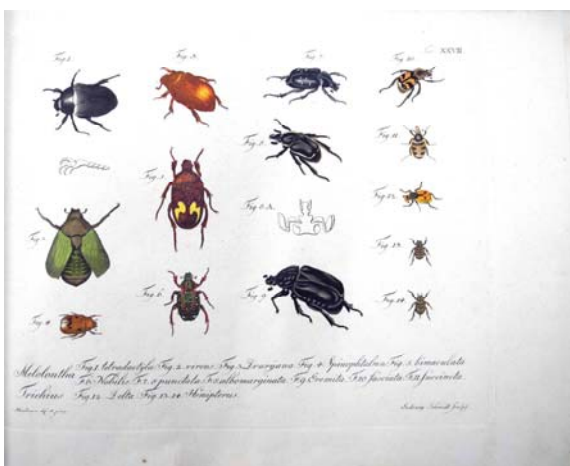 XXVII.
Fig. 1.
Fig. 3.
Fig. 7.
Fig. 10.
Fig. 11.
Fig. 2.
Fig. 5.
Fig. 8.a.
Fig. 12.
Fig. 13.
Fig. 4.
Fig. 6.
Fig. 9.
Fig. 14.
Melolontha Fig. 1. tetradactyla Fig. 2. virens Fig. 3. Fig. 4. Fig. 5. bimaculata
F. 6. Nobilis F. 7. 8 punctata F. 8. albomarginata Fig. 9. Eremita F. 10. fasciata F. 11. succincta
Trichius Fig. 12. Delta Fig. 13. 14. Hemipterus
Ludewig Schmidt sculps